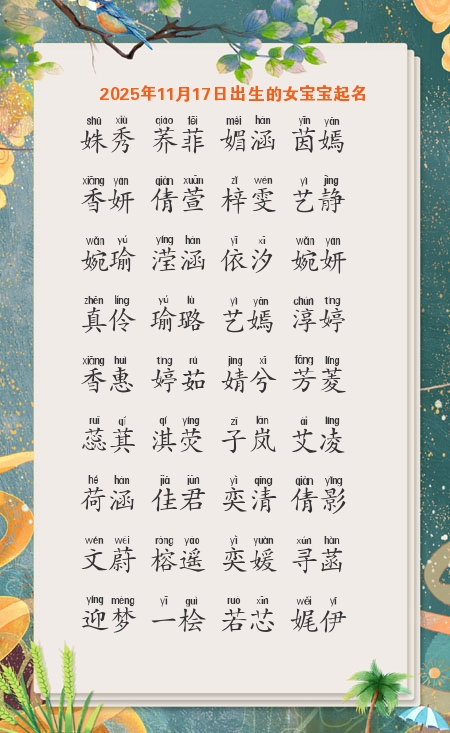 2025年11月17日出生的女宝宝起名
shū xiù qiáo fēi méi hán yīn yān
姝秀 荞菲 媚涵 茵嫣
xiāng yán qiàn xuān zǐ wén yì jìng
香妍 倩萱 梓雯 艺静
wǎn yú yíng hán yī xī wǎn yán
婉瑜 滢涵 依汐 婉妍
zhēn líng yú lù yì yān chún tíng
真伶 瑜璐 艺嫣 淳婷
xiāng huì tíng rú jīng xī fāng líng
香惠 婷茹 婧兮 芳菱
ruǐ qí qí yíng zǐ lán ài líng
蕊萁 淇荧 子岚 艾凌
hé hán jiā jūn yì qīng qiàn yǐng
荷涵 佳君 奕清 倩影
wén wèi róng yáo yì yuán xún hàn
文蔚 榕遥 奕媛 寻菡
yíng mèng yī guì ruò xīn wěi yī
迎梦 一桧 若芯 娓伊